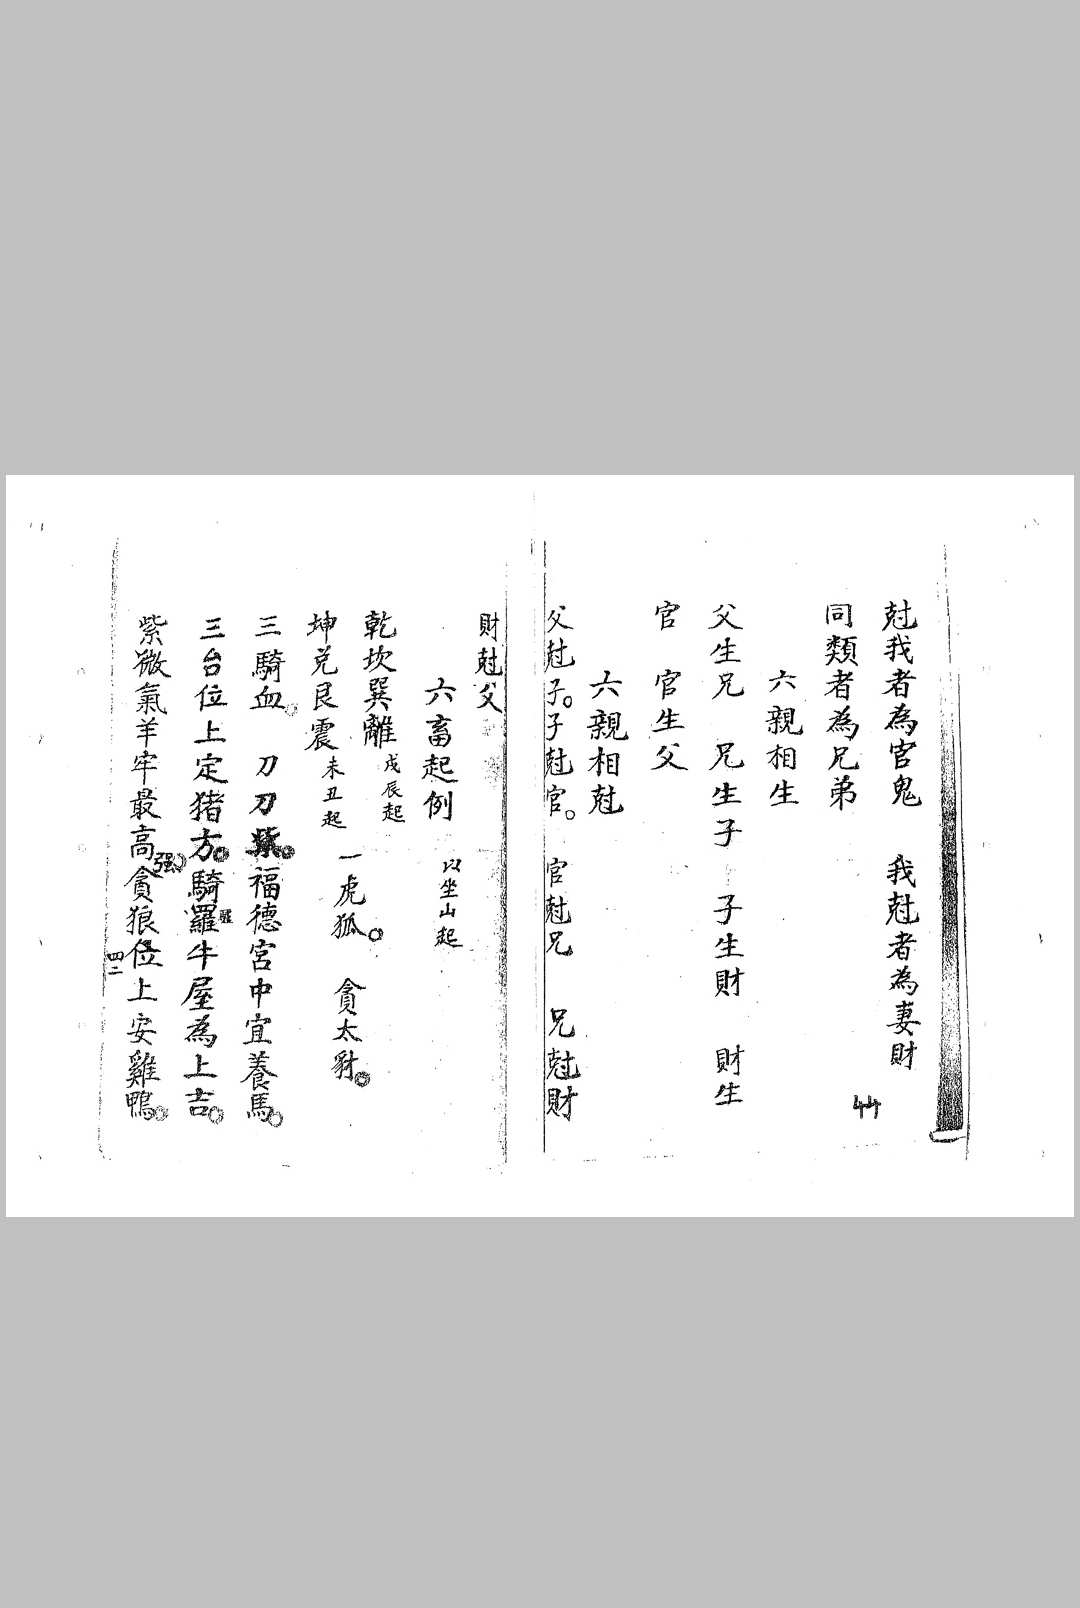 尅我者為官鬼　我尅者為妻財
同類者為兄弟
六親相生
父生兄　兄生子　子生財　財生
官　官生父
六親相尅
父尅子。子尅官。　官尅兄　兄尅財
財尅父
六畜起例　以坐山起
乾坎巽離戌辰起
坤兌艮震未丑起　一虎狐。　貪太豺。
三騎血。　刀刀紫。福德宮中宜養馬。
三台位上定猪方。騎羅牛屋為上吉。
紫微氣羊牢最高強。貪狼位上安雞鴨。
四二
44